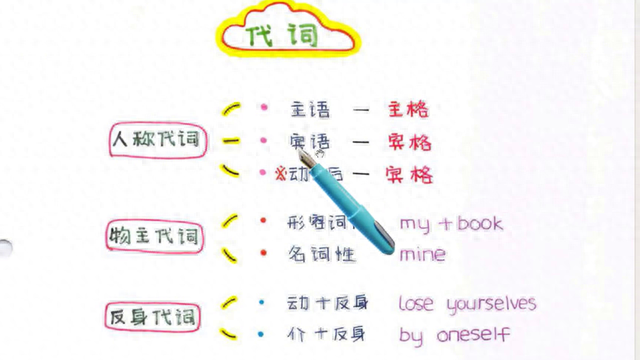 代词
人称代词
主语 — 主格
宾语 — 宾格
※动 后 — 宾格
物主代词
形容词 my + book
名词性 mine
反身代词
动+反身 lose yourselves
介+反身 by oneself